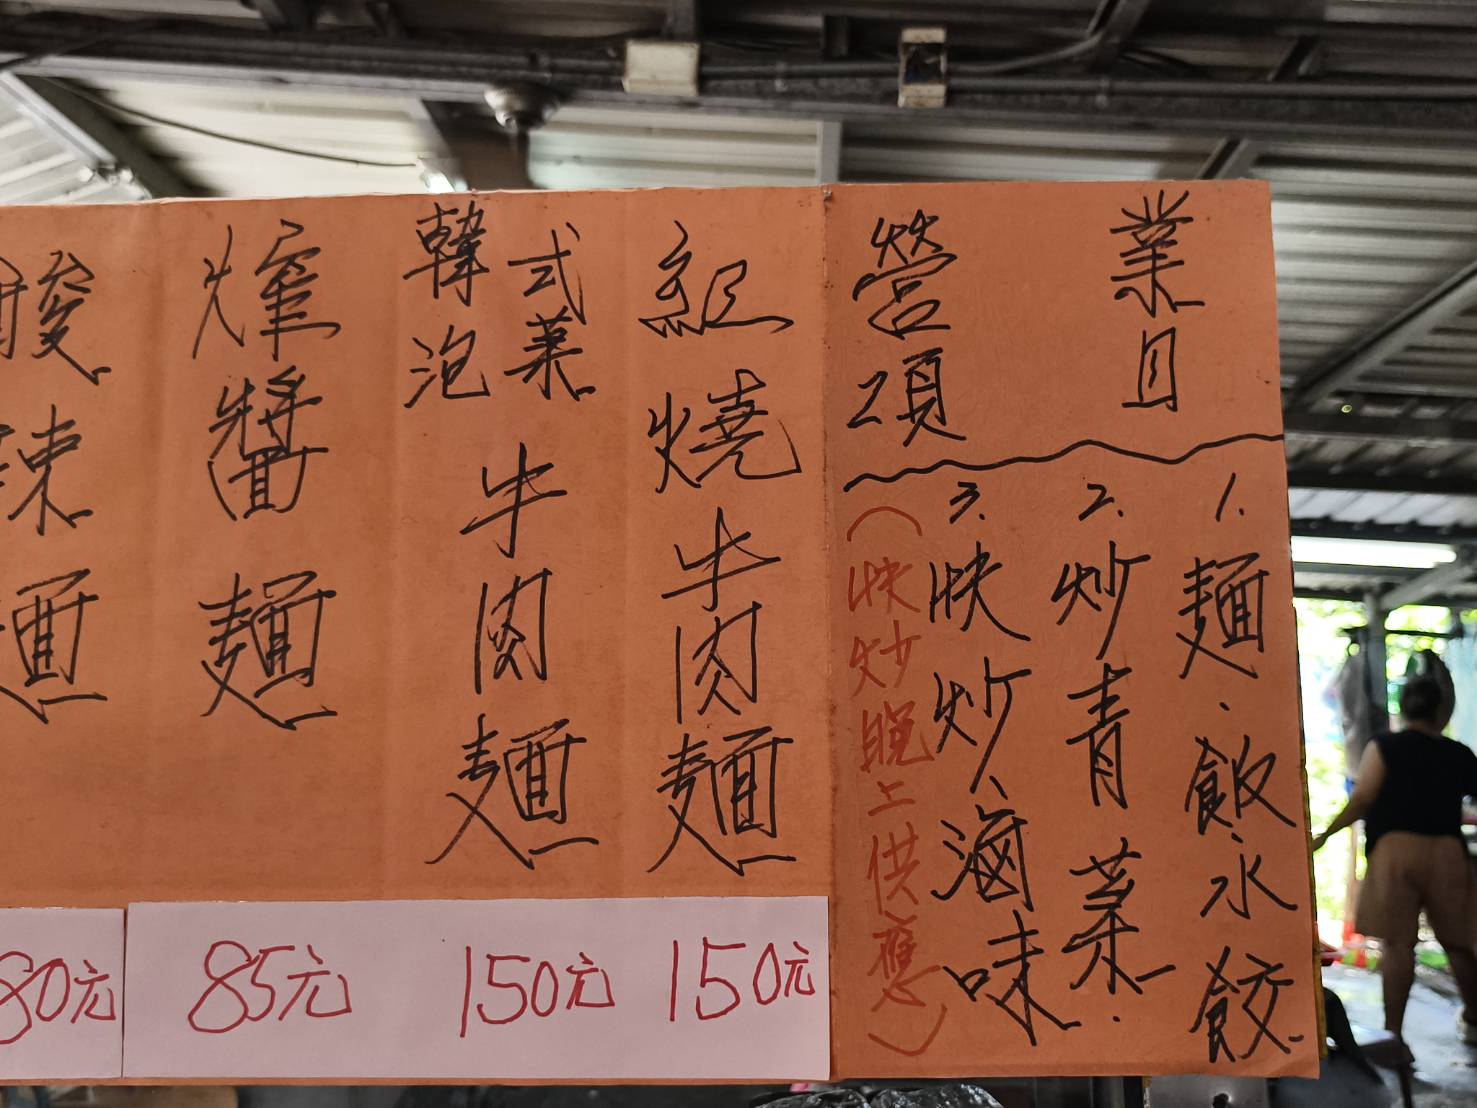 營業
項目
1. 麵、飯、水餃
2. 炒青菜.
3. 快炒、滷味
(快炒晚上供應)
紅燒牛肉麵
150元
韓式
泡菜
牛肉麵
150元
炸醬麵
85元
酸辣麵
80元